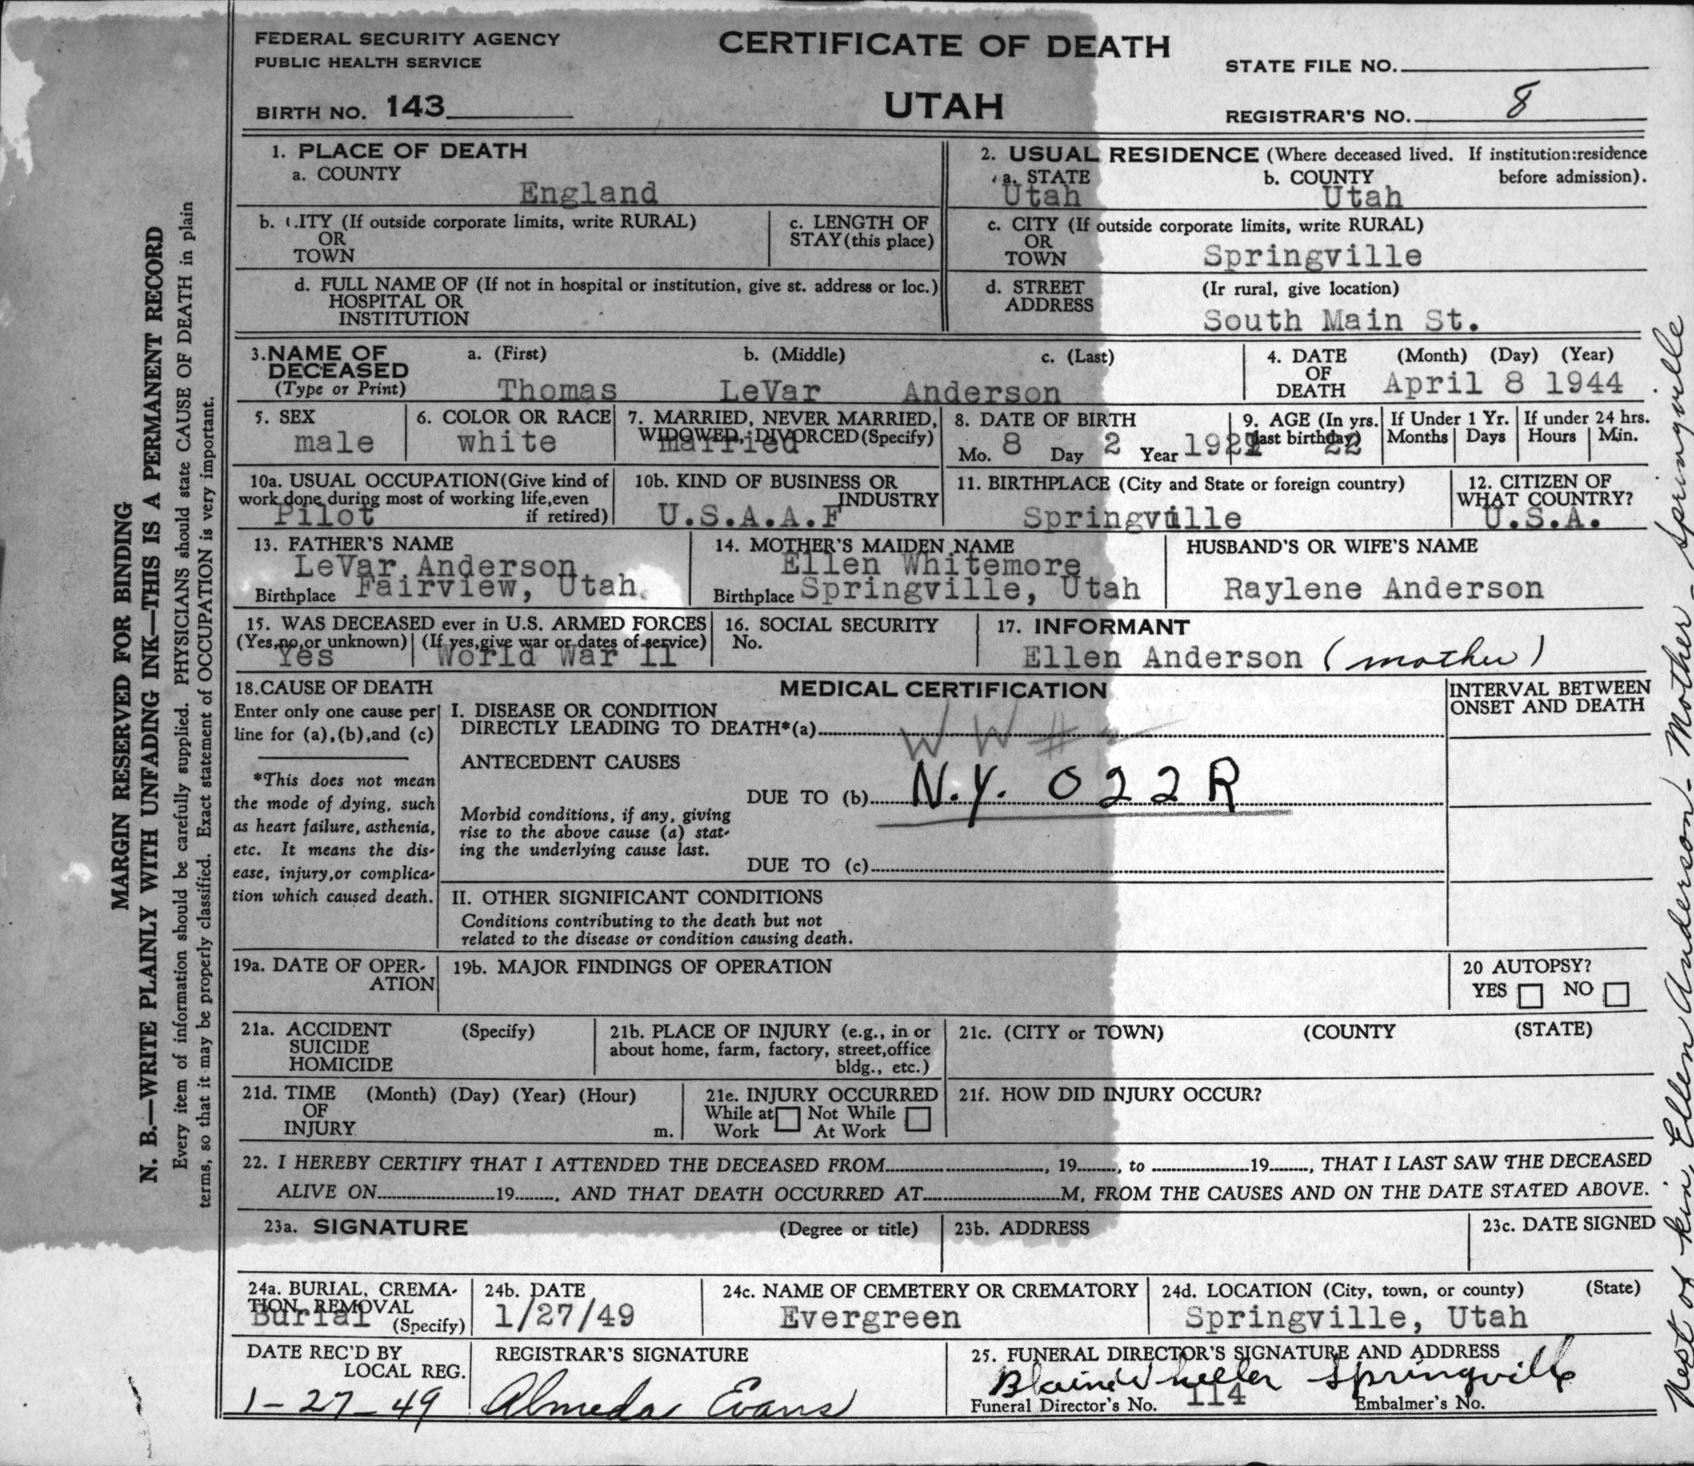 FEDERAL SECURITY AGENCY
PUBLIC HEALTH SERVICE
CERTIFICATE OF DEATH
STATE FILE NO.
BIRTH NO. 143
UTAH
REGISTRAR'S NO. 8
1. PLACE OF DEATH
a. COUNTY
England
b. CITY (If outside corporate limits, write RURAL)
OR
TOWN
c. LENGTH OF
STAY (this place)
d. FULL NAME OF (If not in hospital or institution, give st. address or loc.)
HOSPITAL OR
INSTITUTION
2. USUAL RESIDENCE (Where deceased lived. If institution:residence
a. STATE b. COUNTY before admission).
Utah Utah
c. CITY (If outside corporate limits, write RURAL)
OR
TOWN Springville
d. STREET (Ir rural, give location)
ADDRESS
South Main St.
3. NAME OF a. (First) b. (Middle) c. (Last)
DECEASED
(Type or Print) Thomas LeVar Anderson
4. DATE (Month) (Day) (Year)
OF
DEATH April 8 1944
5. SEX
male
6. COLOR OR RACE
white
7. MARRIED, NEVER MARRIED,
WIDOWED, DIVORCED (Specify)
married
8. DATE OF BIRTH
Mo. 8 Day 2 Year 1921
9. AGE (In yrs.
last birthday)
22
If Under 1 Yr.
Months Days
If under 24 hrs.
Hours Min.
10a. USUAL OCCUPATION (Give kind of
work done during most of working life, even
if retired)
Pilot
10b. KIND OF BUSINESS OR
INDUSTRY
U.S.A.A.F
11. BIRTHPLACE (City and State or foreign country)
Springville
12. CITIZEN OF
WHAT COUNTRY?
U.S.A.
13. FATHER'S NAME
LeVar Anderson
Birthplace Fairview, Utah
14. MOTHER'S MAIDEN NAME
Ellen Whitemore
Birthplace Springville, Utah
HUSBAND'S OR WIFE'S NAME
Raylene Anderson
15. WAS DECEASED ever in U.S. ARMED FORCES
(Yes, no, or unknown) (If yes, give war or dates of service)
Yes World War II
16. SOCIAL SECURITY
No.
17. INFORMANT
Ellen Anderson (mother)
18. CAUSE OF DEATH
Enter only one cause per
line for (a), (b), and (c)
*This does not mean
the mode of dying, such
as heart failure, asthenia,
etc. It means the dis-
ease, injury, or complica-
tion which caused death.
MEDICAL CERTIFICATION
I. DISEASE OR CONDITION
DIRECTLY LEADING TO DEATH*(a)
WW #2
ANTECEDENT CAUSES
DUE TO (b) N.Y. 022R
Morbid conditions, if any, giving
rise to the above cause (a) stat-
ing the underlying cause last.
DUE TO (c)
II. OTHER SIGNIFICANT CONDITIONS
Conditions contributing to the death but not
related to the disease or condition causing death.
INTERVAL BETWEEN
ONSET AND DEATH
19a. DATE OF OPER-
ATION
19b. MAJOR FINDINGS OF OPERATION
20 AUTOPSY?
YES NO
21a. ACCIDENT (Specify)
SUICIDE
HOMICIDE
21b. PLACE OF INJURY (e.g., in or
about home, farm, factory, street, office
bldg., etc.)
21c. (CITY or TOWN) (COUNTY (STATE)
21d. TIME (Month) (Day) (Year) (Hour)
OF
INJURY m.
21e. INJURY OCCURRED
While at Not While
Work At Work
21f. HOW DID INJURY OCCUR?
22. I HEREBY CERTIFY THAT I ATTENDED THE DECEASED FROM , 19 , to 19 , THAT I LAST SAW THE DECEASED
ALIVE ON 19 , AND THAT DEATH OCCURRED AT M, FROM THE CAUSES AND ON THE DATE STATED ABOVE.
23a. SIGNATURE (Degree or title)
23b. ADDRESS
23c. DATE SIGNED
24a. BURIAL, CREMA-
TION, REMOVAL
(Specify)
Burial
24b. DATE
1/27/49
24c. NAME OF CEMETERY OR CREMATORY
Evergreen
24d. LOCATION (City, town, or county) (State)
Springville, Utah
DATE REC'D BY
LOCAL REG.
1-27-49
REGISTRAR'S SIGNATURE
Almeda Evans
25. FUNERAL DIRECTOR'S SIGNATURE AND ADDRESS
Blaine Wheeler Springville
Funeral Director's No. 114 Embalmer's No.
MARGIN RESERVED FOR BINDING
N. B.—WRITE PLAINLY WITH UNFADING INK—THIS IS A PERMANENT RECORD
Every item of information should be carefully supplied. PHYSICIANS should state CAUSE OF DEATH in plain
terms, so that it may be properly classified. Exact statement of OCCUPATION is very important.
Next of kin, Ellen Anderson - Mother - Springville